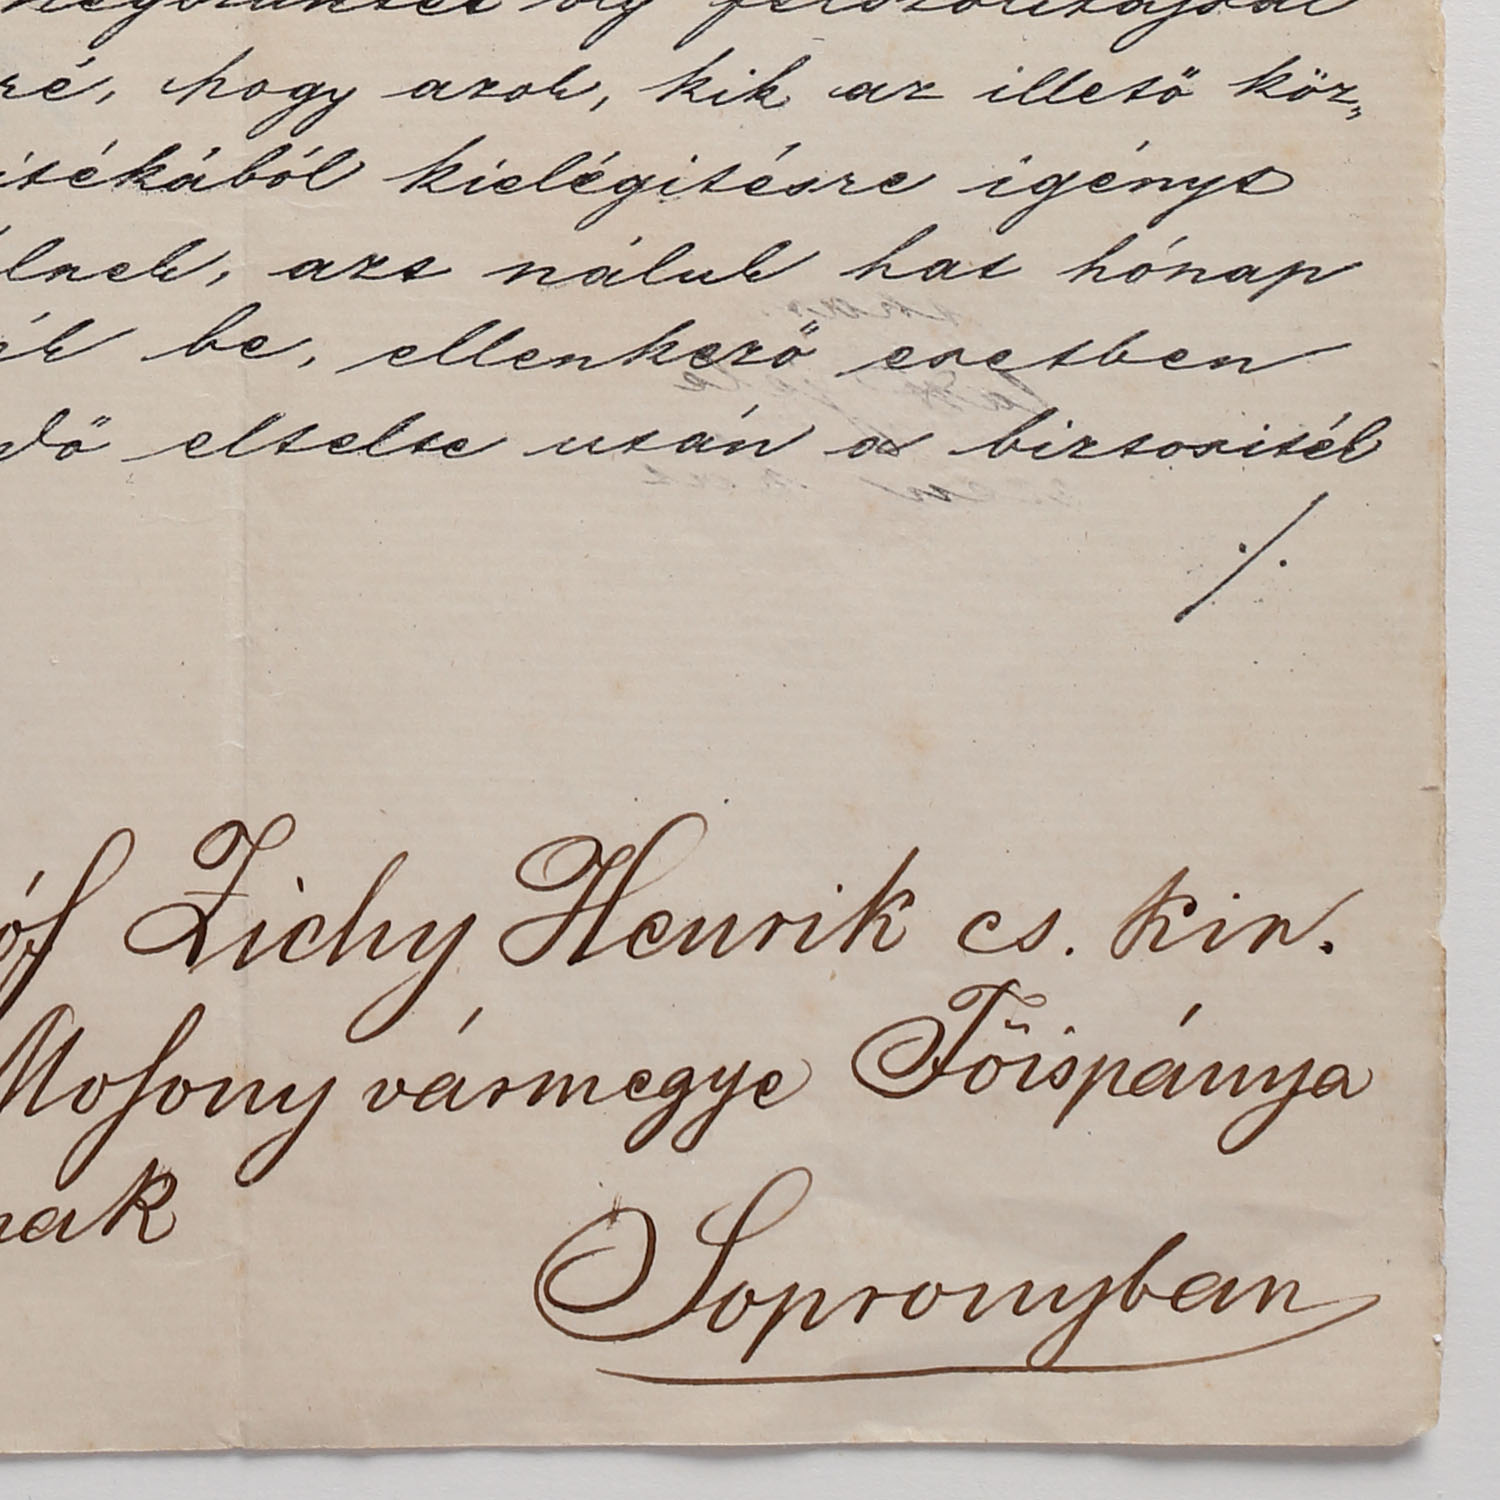 ré, hogy azok, kik az illető köz„
itékából kielégitésre igényt
lnek, azt náluk hat hónap
ék be, ellenkező esetben
dő eltelte után a biztositék
./.
óf Zichy Henrik cs. kir.
Mosony vármegye Főispánja
nak
Sopronyban